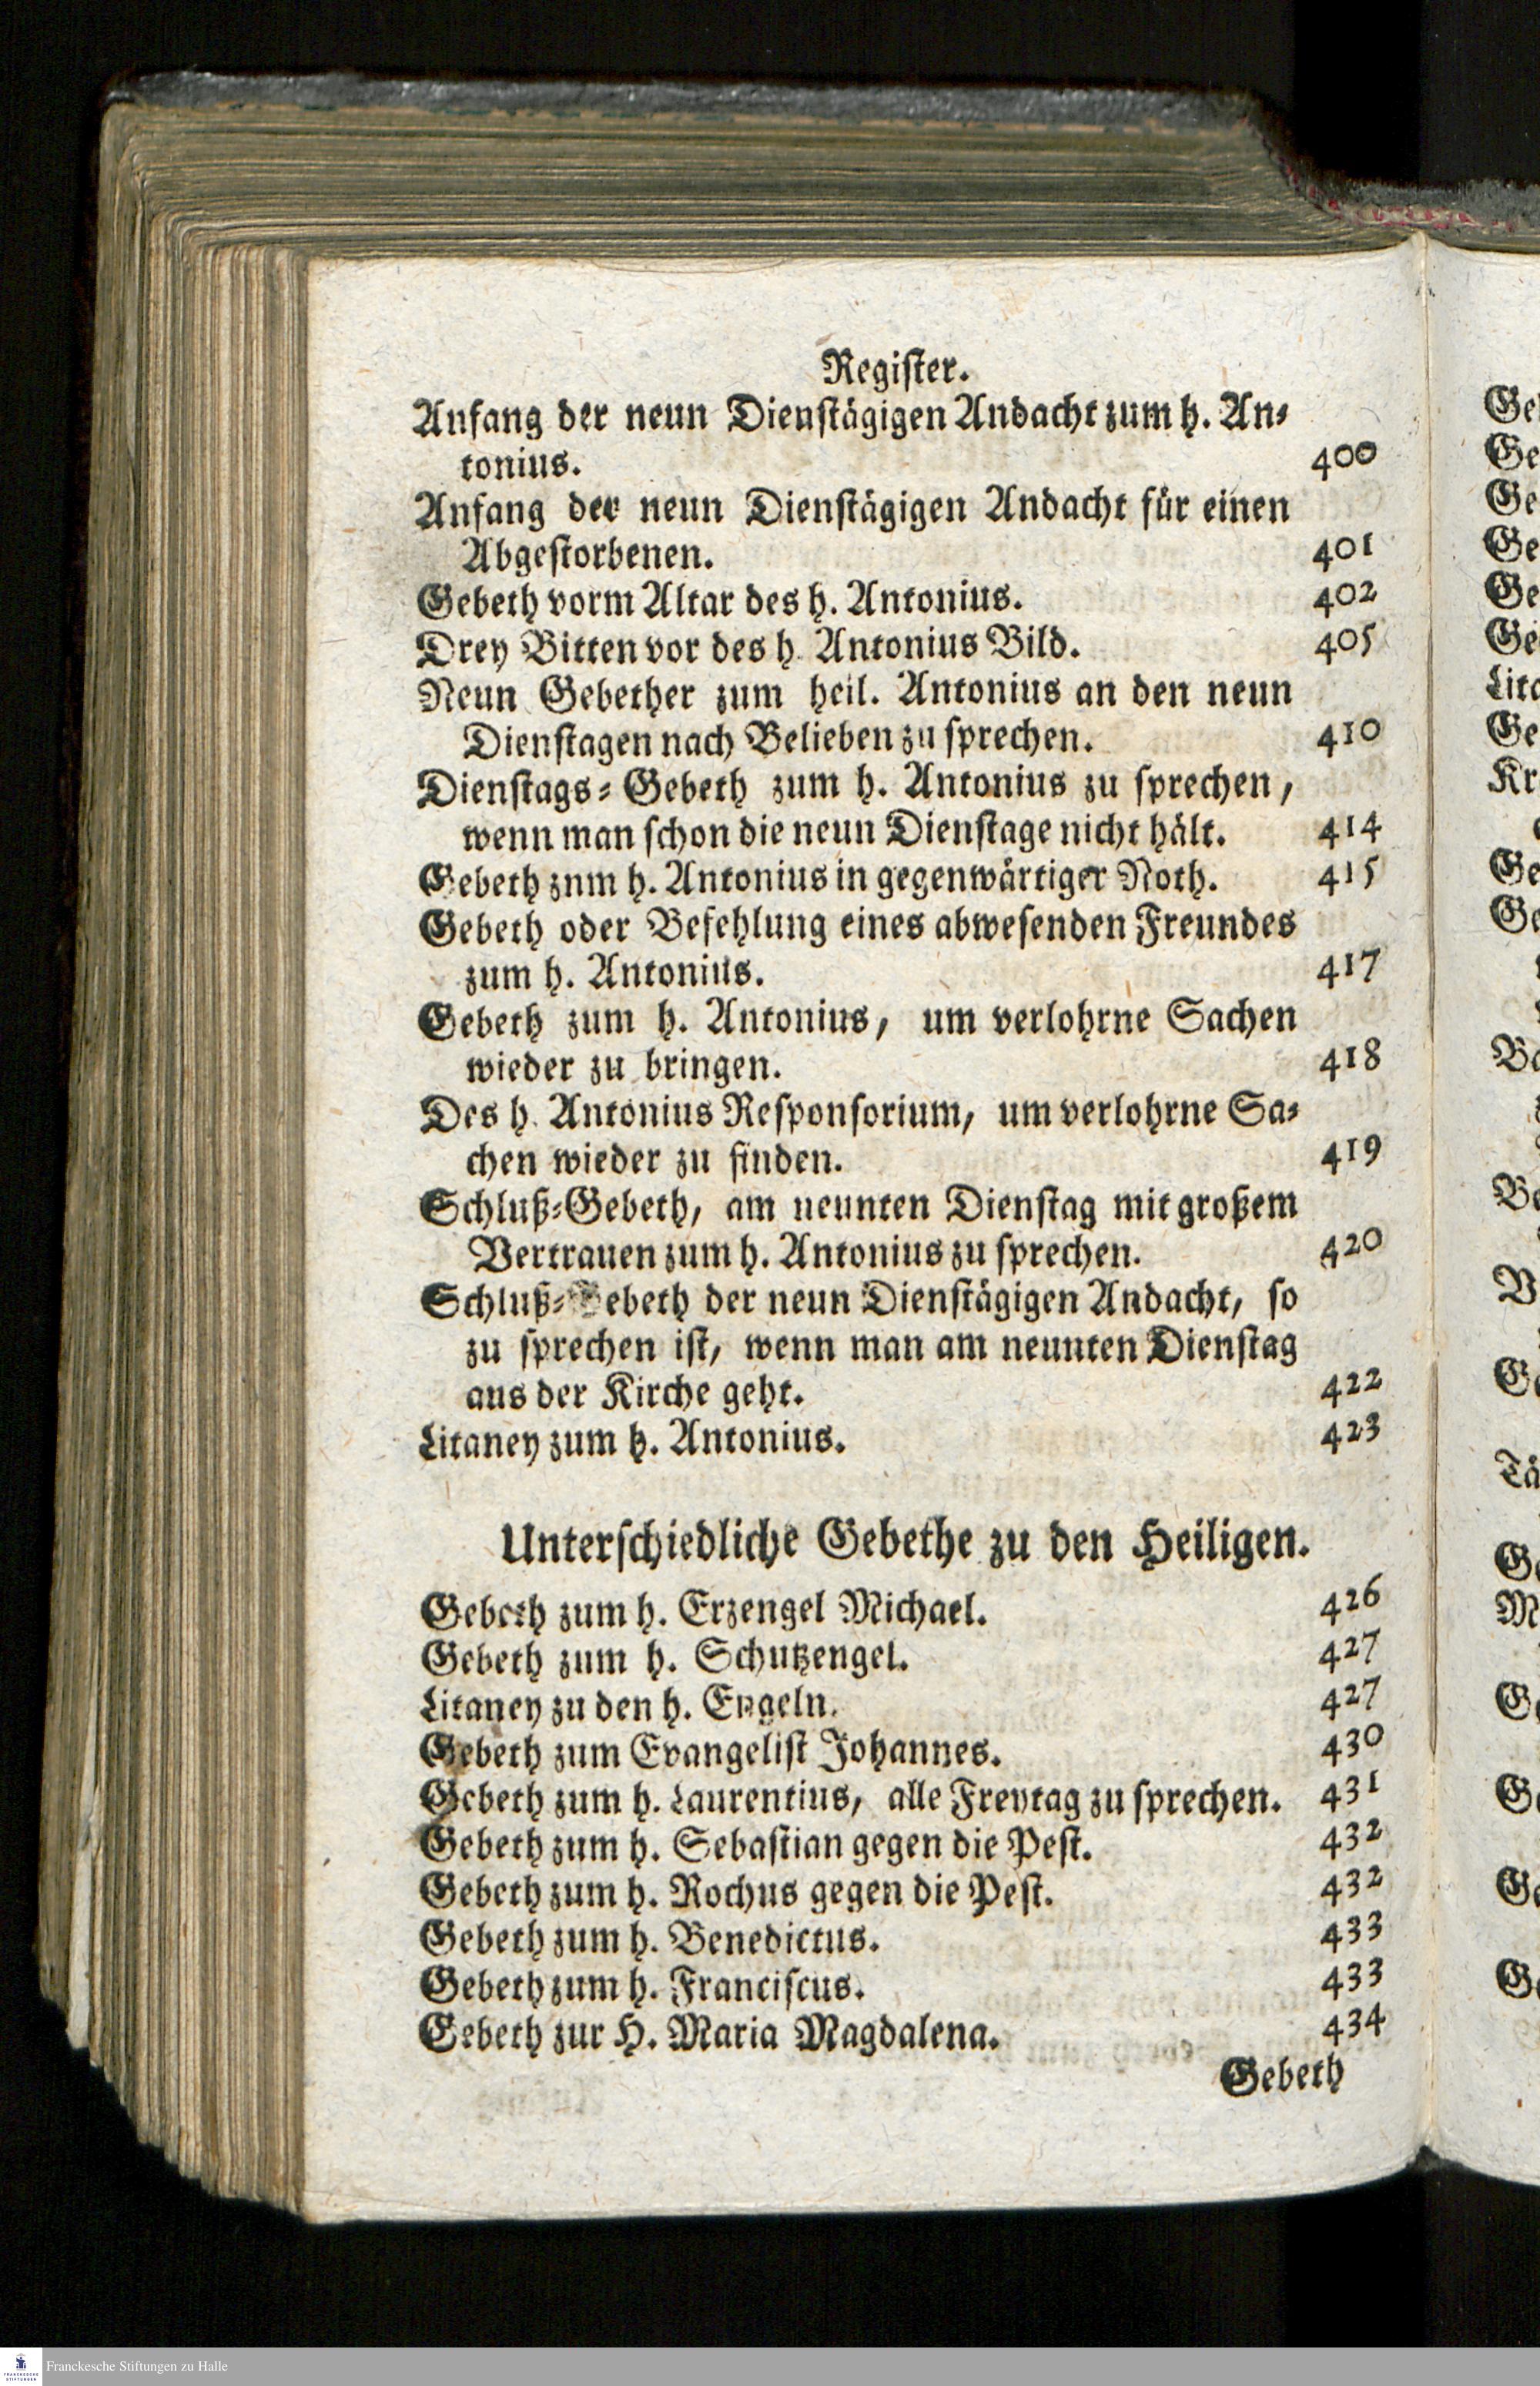 Register.
Anfang der neun Dienstägigen Andacht zum h. An-
tonius. 400
Anfang der neun Dienstägigen Andacht für einen
Abgestorbenen. 401
Gebeth vorm Altar des h. Antonius. 402
Drey Bitten vor des h. Antonius Bild. 405
Neun Gebether zum heil. Antonius an den neun
Dienstagen nach Belieben zu sprechen. 410
Dienstags-Gebeth zum h. Antonius zu sprechen,
wenn man schon die neun Dienstage nicht hält. 414
Gebeth znm h. Antonius in gegenwärtiger Noth. 415
Gebeth oder Befehlung eines abwesenden Freundes
zum h. Antonius. 417
Gebeth zum h. Antonius, um verlohrne Sachen
wieder zu bringen. 418
Des h. Antonius Responsorium, um verlohrne Sa-
chen wieder zu finden. 419
Schluß-Gebeth, am neunten Dienstag mit großem
Vertrauen zum h. Antonius zu sprechen. 420
Schluß-Gebeth der neun Dienstägigen Andacht, so
zu sprechen ist, wenn man am neunten Dienstag
aus der Kirche geht. 422
Litaney zum h. Antonius. 423
Unterschiedliche Gebethe zu den Heiligen.
Gebeth zum h. Erzengel Michael. 426
Gebeth zum h. Schutzengel. 427
Litaney zu den h. Engeln. 427
Gebeth zum Evangelist Johannes. 430
Gebeth zum h. Laurentius, alle Freytag zu sprechen. 431
Gebeth zum h. Sebastian gegen die Pest. 432
Gebeth zum h. Rochus gegen die Pest. 432
Gebeth zum h. Benedictus. 433
Gebeth zum h. Franciscus. 433
Gebeth zur H. Maria Magdalena. 434
Gebeth
Franckesche Stiftungen zu Halle